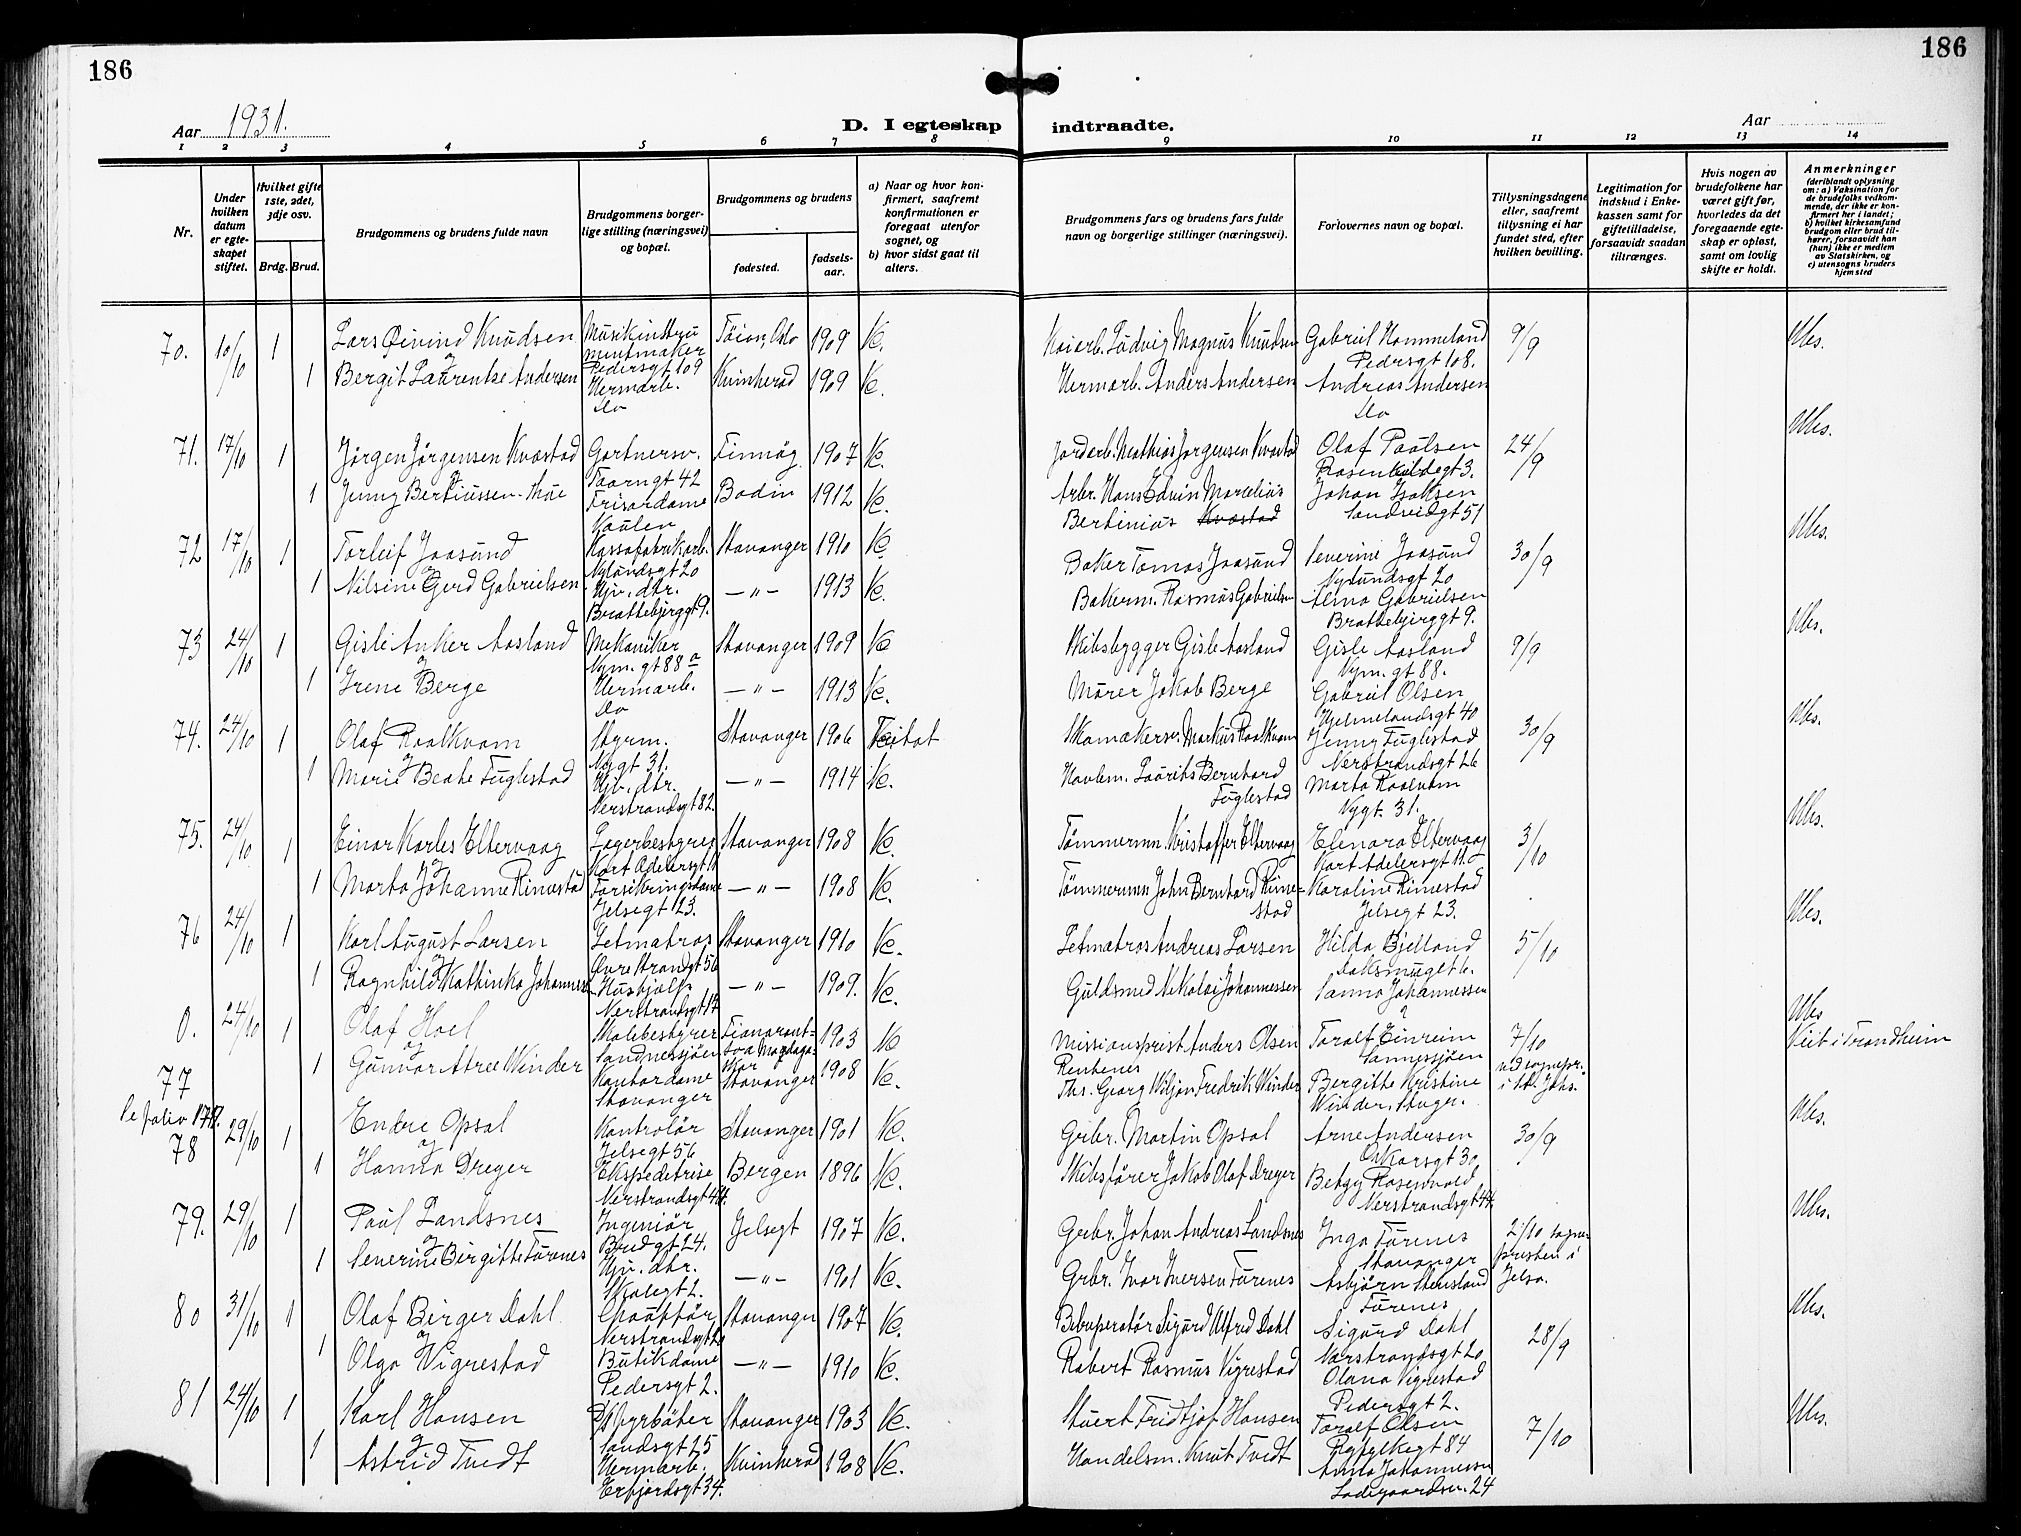 186
186
Aar 1931.
D. I egteskap indtraadte.
Aar
1 2 3 4 5 6 7 8 9 10 11 12 13 14
Nr.
Under hvilken datum er egteskapet stiftet.
Hvilket gifte 1ste, 2det, 3dje osv.
Brdg. Brud.
Brudgommens og brudens fulde navn
Brudgommens borgerlige stilling (næringsvei) og bopæl.
Brudgommens og brudens
fødested.
fødselsaar.
a) Naar og hvor konfirmert, saafremt konfirmationen er foregaat utenfor sognet, og
b) hvor sidst gaat til alters.
Brudgommens fars og brudens fars fulde navn og borgerlige stillinger (næringsvei).
Forlovernes navn og bopæl.
Tillysningsdagene eller, saafremt tillysning ei har fundet sted, efter hvilken bevilling.
Legitimation for indskud i Enkekassen samt for giftetilladelse, forsaavidt saadan tiltrænges.
Hvis nogen av brudefolkene har været gift før, hvorledes da det foregaaende egteskap er opløst, samt om lovlig skifte er holdt.
Anmerkninger (deriblandt oplysning om: a) Vaksination for de brudefolks vedkommende, der ikke er konfirmert her i landet; b) hvilket kirkesamfund brudgom eller brud tilhører, forsaavidt han (hun) ikke er medlem av Statskirken, og c) utensogns bruders hjemsted
70. 10/10 1 Lars Øivind Knudsen Musikinstrumentmaker Pedersgt 109 Tøien, Oslo 1909 Kaiarb. Ludvig Magnus Knudsen Gabriel Hommeland Pedersgt 108. 9/9
og
1 Bergit Laurentse Andersen Hermarb. Do Kvinherad 1909 Hermarb. Anders Andersen Andreas Andersen Do
71. 17/10 1 Jørgen Jørgensen Kvæstad Gartnersv. Taarngt 42 Finnøy 1907 Jordarb. Mathias Jørgensen Kvæstad Olaf Paulsen Rosenkildegt 3. 24/9
1 Jenny Bertiussen Frisørdame Bodin 1912 Arbr. Hans Edvin Marcelius Bertinius Kvæstad Johan Isaksen Sandvidgt 51
72 17/10 1 Torleif Jaasund Nylundsgt 20 Stavanger 1910 Baker Tomas Jaasund Severine Jaasund Nylundsgt 20 30/9
og
1 Nilsine Gerd Gabrielsen Hjv. dtr. Brattebjerggt 9. —"— 1913 Bakerm. Rasmus Gabrielsen Alma Gabrielsen Brattebjerggt 9.
73 24/10 1 Gisle Anker Aasland Mekaniker Nym. gt 88 a Stavanger 1909 Skibsbygger Gisle Aasland Gisle Aasland Nym. gt 88. 9/9
og
1 Irene Berge Hermarb. Do —"— 1913 Murer Jakob Berge Gabriel Olsen Hjelmelandsgt 40
74. 24/10 1 Olaf Raalkvam Styrm. Nygt 31. Stavanger 1906 Skomakersv. Markus Raalkvam Jenny Fuglestad Nerstrandsgt 26 30/9
og
1 Marie Beate Fuglestad Hjv. dtr. Nerstrandsgt 82. —"— 1914 Havlem. Laurits Bernhard Fuglestad Marta Raalkvam Nygt. 31.
75. 24/10 1 Einar Karles Eltervaag Lagerbestyrer Kort Adelersgt 11 Stavanger 1908 Tømmermn Kristoffer Eltervaag Elenora Eltervaag Kort Adelersgt 11. 3/10
og
1 Marta Johanne Rimestad Forsikringsdame Jelsegt 23. —"— 1908 Tømmermn John Bernhard Rimestad Karoline Rimestad Jelsegt 23.
76 24/10 1 Karl August Larsen Letmatros Øvre Strandgt 56 Stavanger 1910 Letmatros Andreas Larsen Hilda Bjelland 5/10
og
1 Ragnhild Kathinka Johannessen Hushjelp Nerstrandsgt 17 —"— 1909. Guldsmed Nikolai Johannessen Sanna Johannessen
0. 24/10 1 Olaf Hoel Sandnessjøen 1903 Missionsprest Anders Olsen Toralf Einreim Sannessjøen 7/10 ved sognepr. i St. Johs. Veit i Trondheim
og
77 1 Gunvor Atree Winder Kontordame Stavanger Stavanger 1908 Rentenes Ths. Georg Wiljon Fredrik Winder Bergitte Kristine Winder, Stvgr.
Se folio 178.
78 29/10 1 Endre Opsal Kontrolør Jelsegt 56 Stavanger 1901 Grbr. Martin Opsal Arne Andersen Oskarsgt 30 30/9
og
1 Hanna Dreyer Ekspeditrise Nerstrandsgt 44. Bergen 1896 Skibsfører Jakob Olaf Dreyer Betzy Rosenvold Nerstrandsgt 44.
79. 29/10 1 Paul Landsnes Ingeniør Bredgt 24. Jelsegt 1907 Grbr. Johan Andreas Landsnes Inga Furenes Stavanger 2/10 sognepresten i Jelsa.
og
1 Severine Birgitte Furenes Hjv. dtr. Skolegt 2. —"— 1901 Grbr. Ivar Iversen Furenes Asbjørn Stensland Furenes
80 31/10 1 Olaf Birger Dahl Chauffør Nerstrandsgt 20 Stavanger 1907 Sigurd Alfred Dahl Sigurd Dahl Nerstrandsgt 20 28/9
og
1 Olga Vigrestad Butikdame Pedersgt 2. —"— 1910 Robert Rasmus Vigrestad Olana Vigrestad Pedersgt 2.
81 24/10 1 Karl Hansen Fyrbøter Sandsgt 25 Stavanger 1903 Stuert Fridtjof Hansen Toralf Olsen Ryfylkegt 84 7/10
og
1 Astrid Tvedt Hermarb. Erfjordsgt 34. Kvinherad 1908 Handelsm. Knut Tvedt Anna Johannessen Ladegaardsv. 24